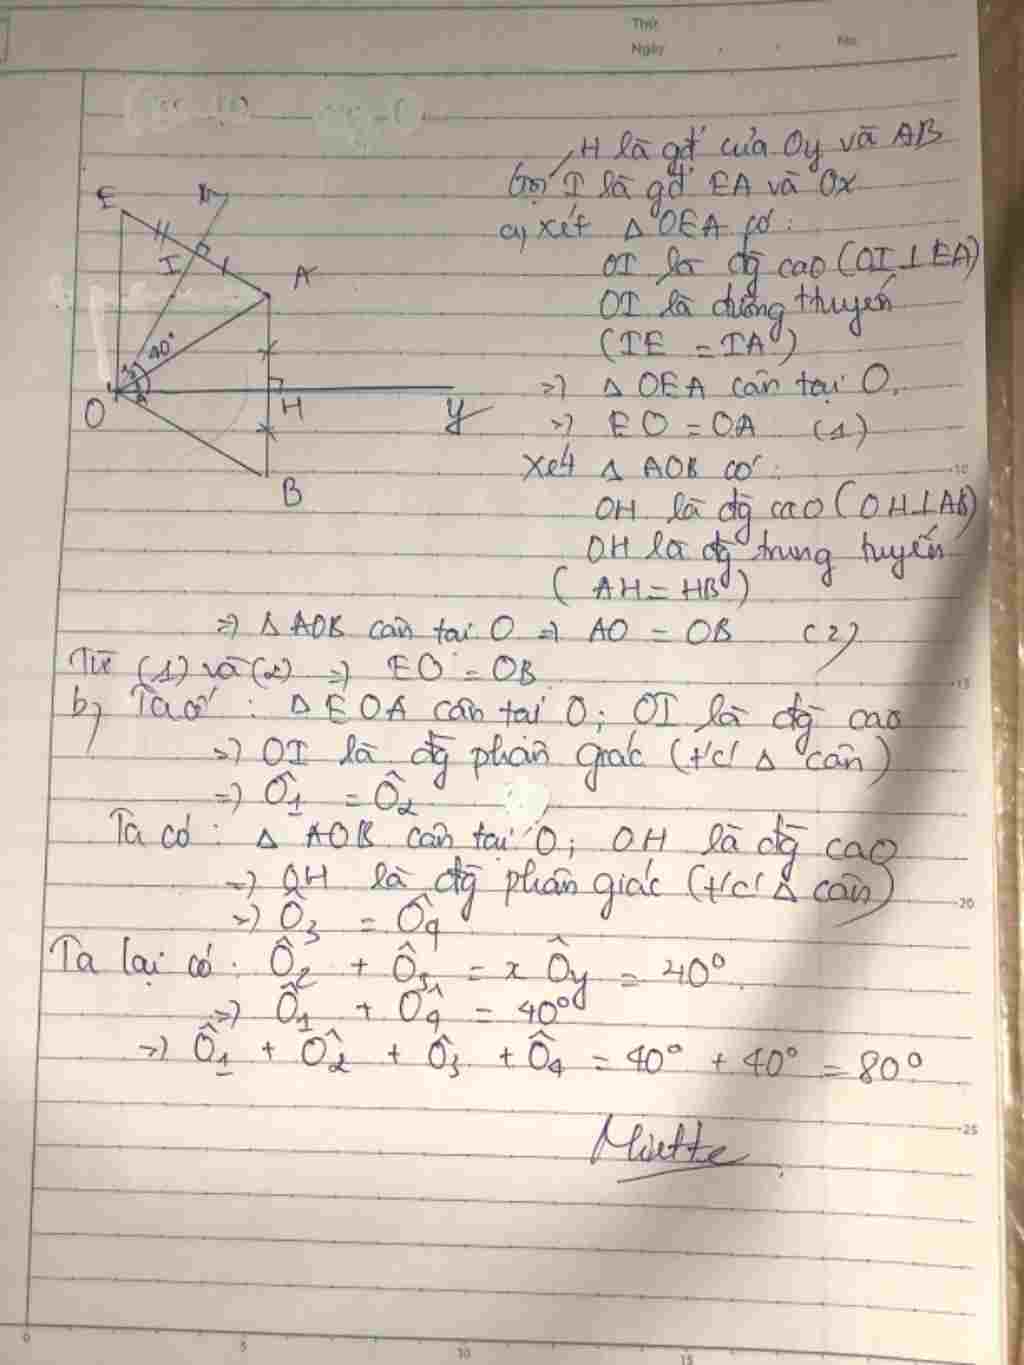 Thứ
Ngày
No.
H là gđ của Oy và AB
Gọi I là gđ EA và Ox
a, xét Δ OEA có :
OI là đg cao (OI⊥EA)
OI là đường thuyến
(IE = IA)
=> Δ OEA cân tại O.
=> EO = OA (1)
Δ AOB có :
OH là đg cao (OH⊥AB)
OH là đg trung tuyến
( AH = HB )
=> Δ AOB cân tại O => AO = OB (2)
Từ (1) và (2) => EO = OB
b, Ta có : Δ EOA cân tại O; OI là đg cao
=> OI là đg phân giác (t/c/ Δ cân)
=> Ô1 = Ô2
Ta có : Δ AOB cân tại O; OH là đg cao
=> OH là đg phân giác (t/c/ Δ cân)
=> Ô3 = Ô4
Ta lại có : Ô2 + Ô3 = xÔy = 40°
=> Ô1 + Ô4 = 40°
=> Ô1 + Ô2 + Ô3 + Ô4 = 40° + 40° = 80°
E
I
A
40°
O
H
y
B
10
15
20
25
0
5
10
15